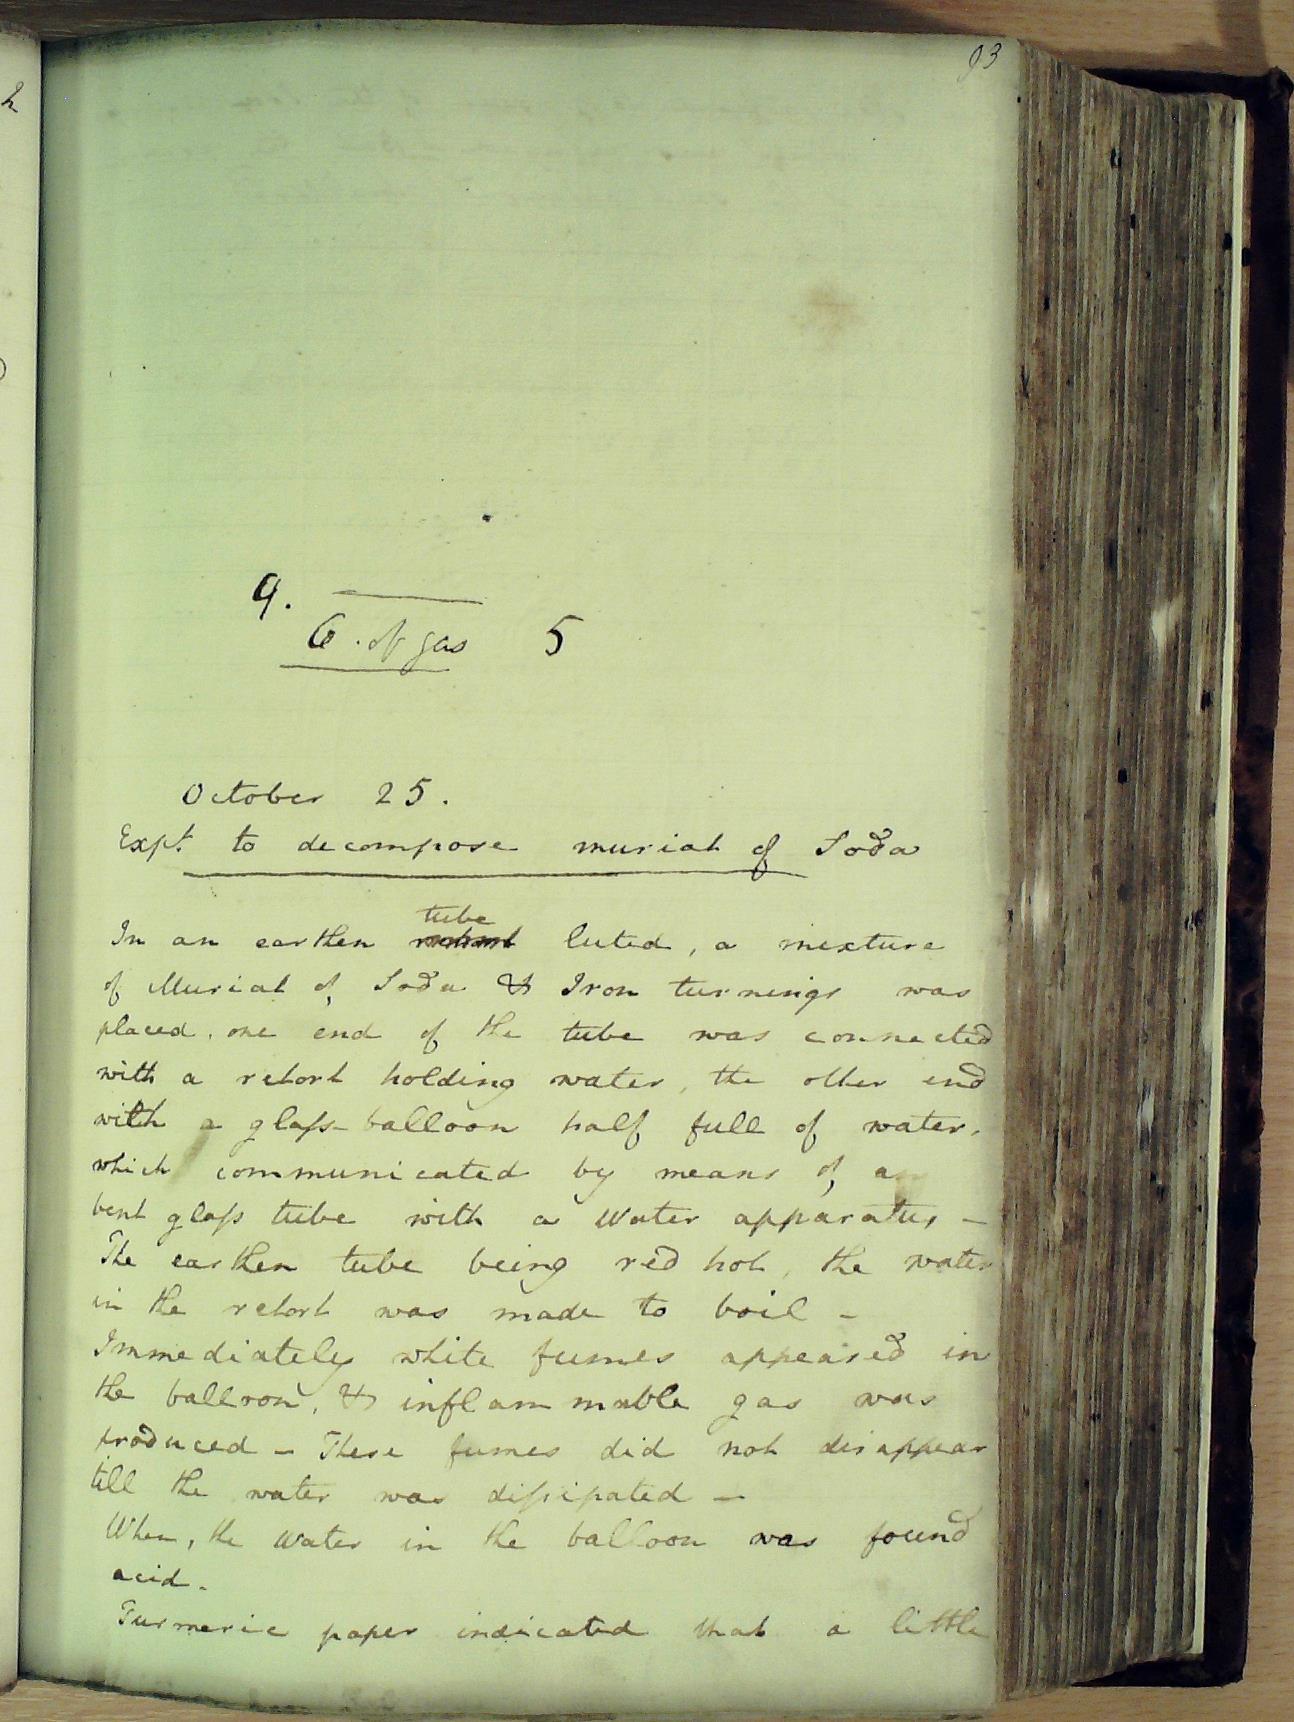 93
9.
6 . of gas 5
October 25.
Expt. to decompose muriat of Soda
tube
In an earthen retort luted, a mixture
of Muriat of Soda & Iron turnings was
placed. one end of the tube was connected
with a retort holding water, the other end
with a glass balloon half full of water,
which communicated by means of a
bent glass tube with a Water apparatus –
The earthen tube being red hot, the water
in the retort was made to boil –
Immediately white fumes appeared in
the balloon, & inflammable gas was
produced – These fumes did not disappear
till the water was dissipated –
When, the water in the balloon was found
acid.
Turmeric paper indicated that a little